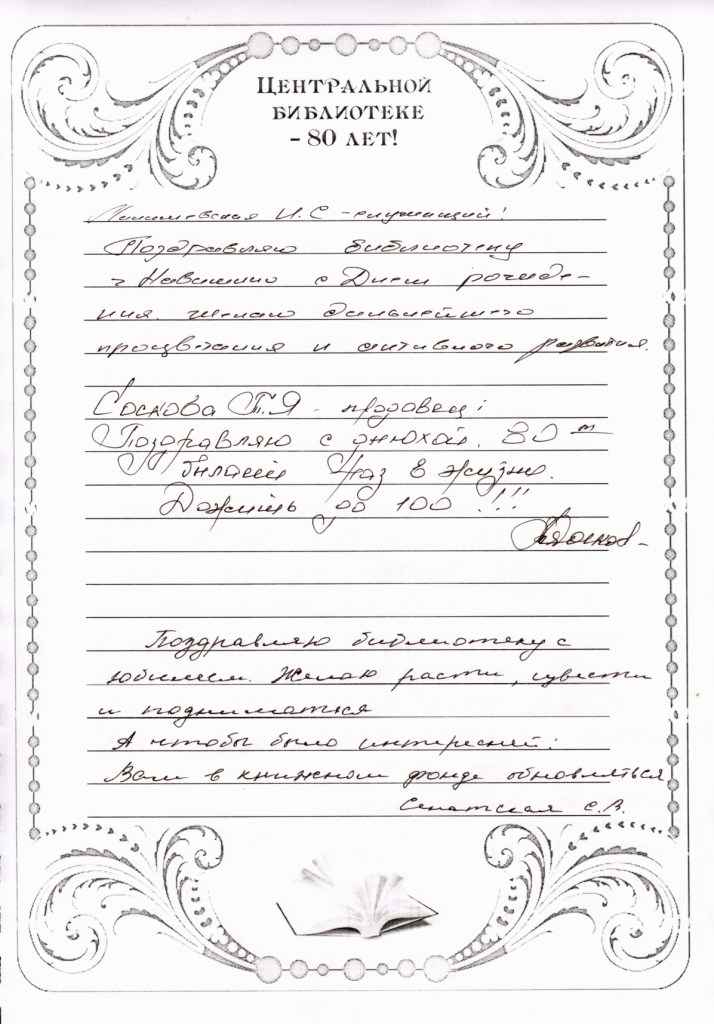 ЦЕНТРАЛЬНОЙ
БИБЛИОТЕКЕ
– 80 ЛЕТ!
И.С – служащий!
Поздравляю библиотеку
с Днем рожде-
ния. желаю дальнейшего
процветания и активного развития.
Соскова Т.Я – продавец:
Поздравляю с днюхой. 80 –
раз в жизни.
Дожить до 100 !!!
Поздравляю библиотеку с
юбилеем. Желаю расти, цвести
и подниматься
А чтобы было интересней:
Вам в книжном фонде обновляться
Сенатская С.В.